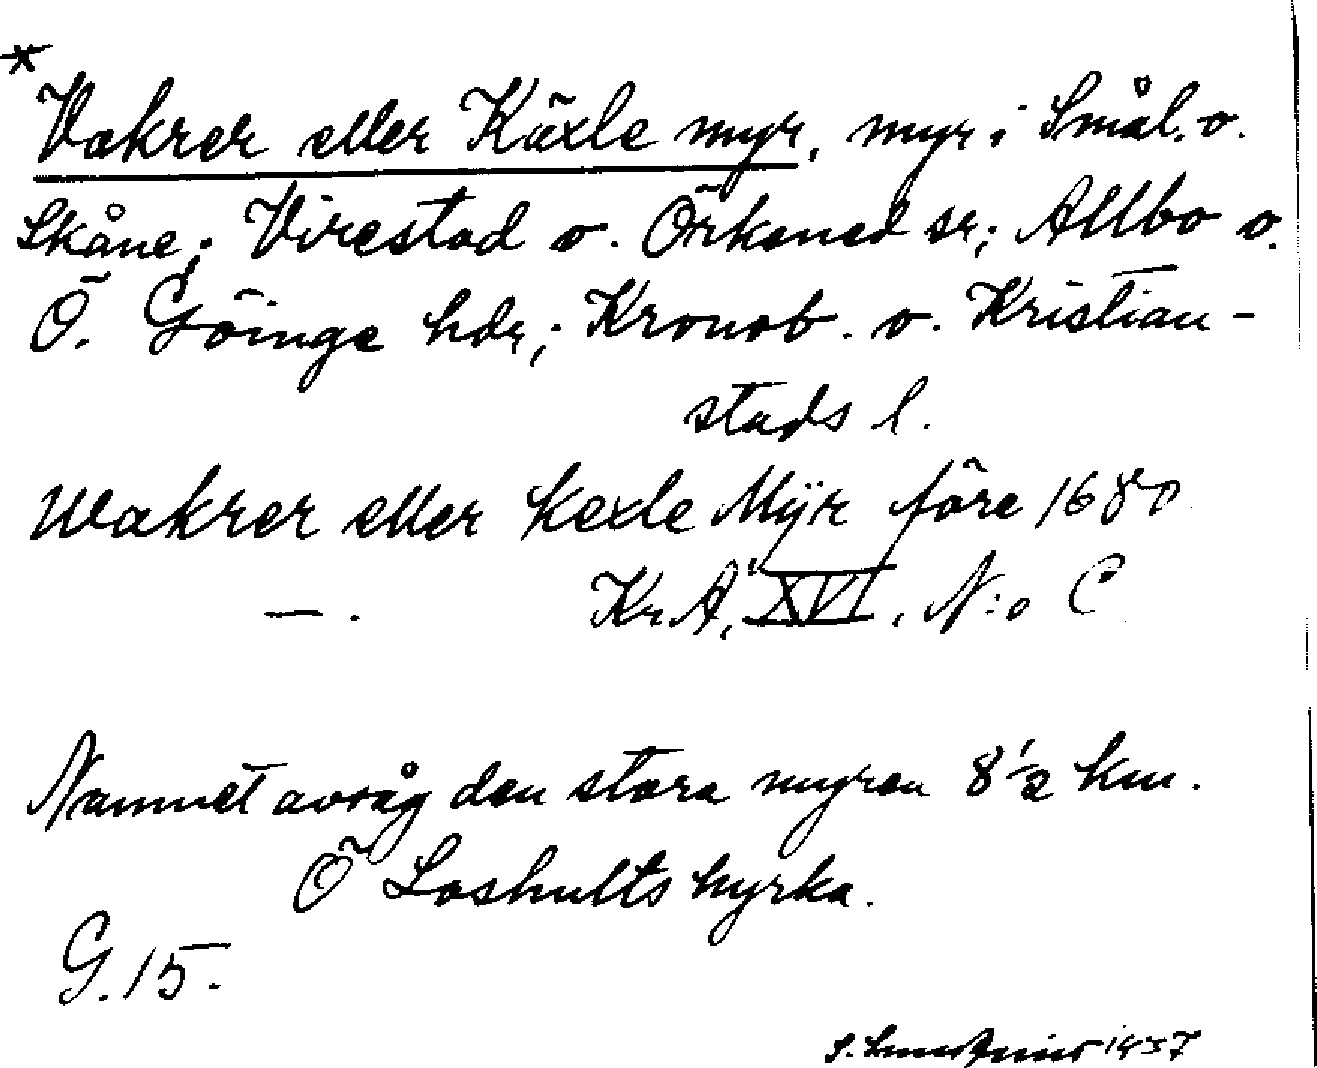 * Vakrer eller Käxle myr, myr i Smål. o.
Skåne; Virestad o. Örkened sr; Allbo o.
Ö. Göinge hdr; Kronob. o. Kristian-
stads l.
Wakrer eller Kexle Mÿr före 1680
—. KrA, XVI, N:o C
Namnet avsåg den stora myren 8 1/2 km.
Ö Loshults kyrka.
G. 15.
S. 1937